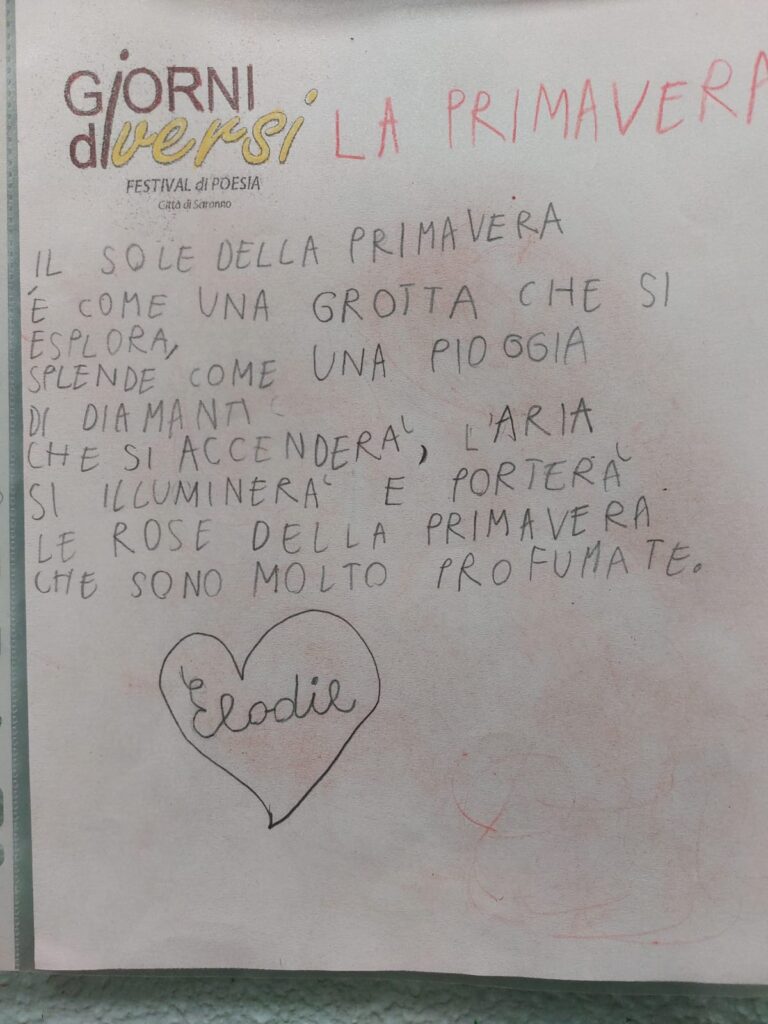 GiORNI
diversi
LA PRIMAVERA
FESTIVAL di POESIA
Città di Saronno
IL SOLE DELLA PRIMAVERA
È COME UNA GROTTA CHE SI
ESPLORA,
SPLENDE COME UNA PIOGGIA
DI DIAMANTI
CHE SI ACCENDERÀ, L'ARIA
SI ILLUMINERÀ E PORTERÀ
LE ROSE DELLA PRIMAVERA
CHE SONO MOLTO PROFUMATE.
Èlodie